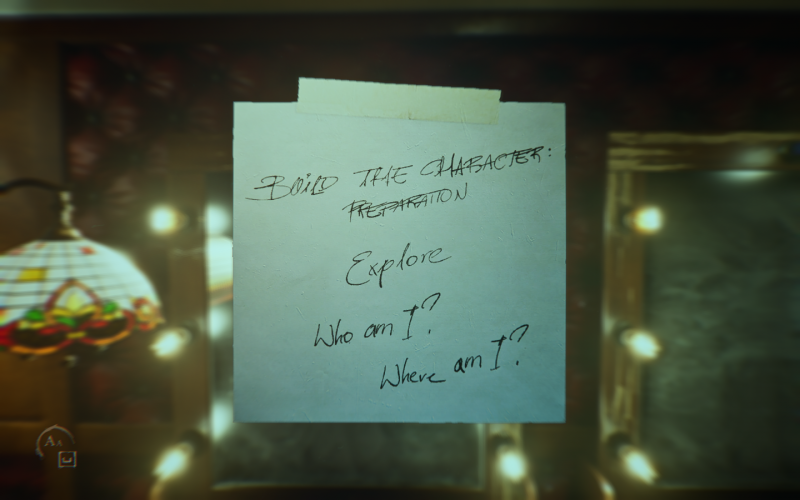 BUILD THE CHARACTER:
PREPARATION
Explore
Who am I?
Where am I?
AA